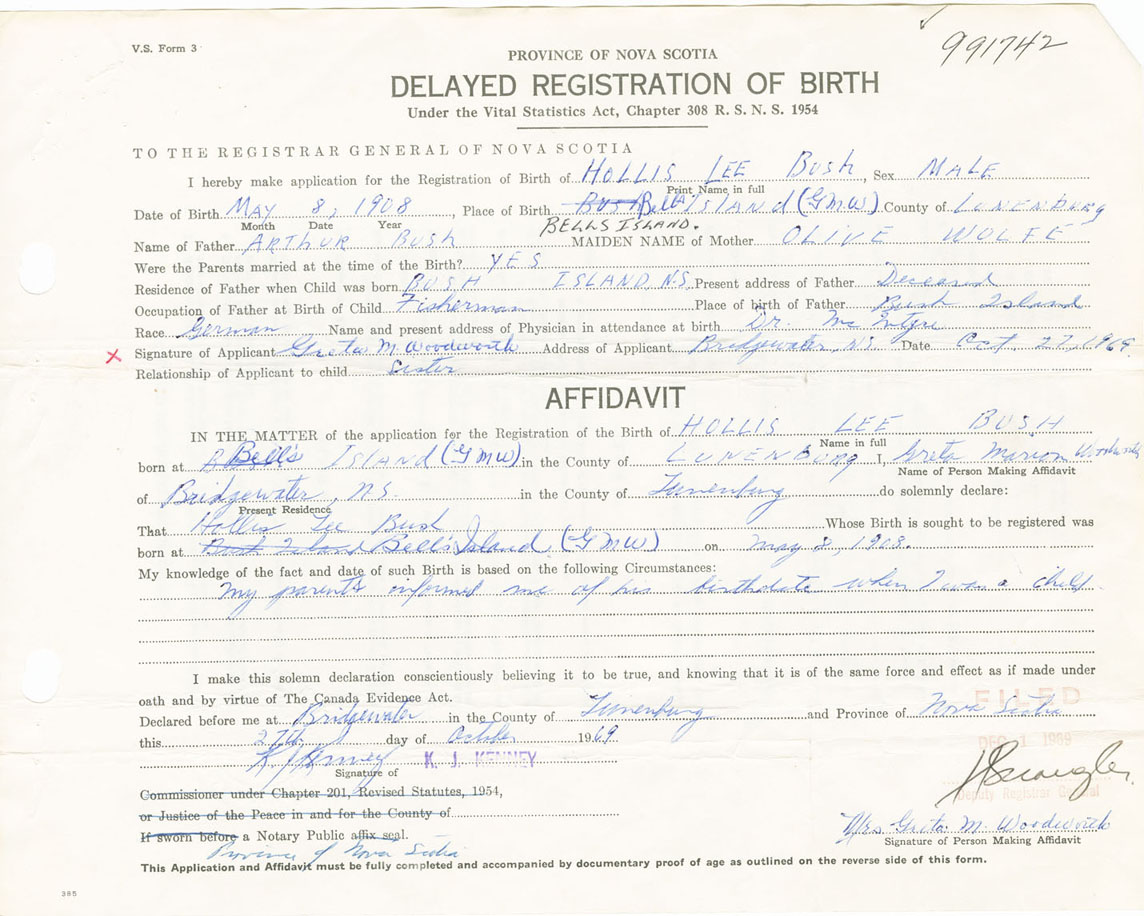 V.S. Form 3
991742
PROVINCE OF NOVA SCOTIA
DELAYED REGISTRATION OF BIRTH
Under the Vital Statistics Act, Chapter 308 R. S. N. S. 1954
TO THE REGISTRAR GENERAL OF NOVA SCOTIA
I hereby make application for the Registration of Birth of HOLLIS LEE BUSH, Sex MALE
Print Name in full
Date of Birth MAY 8, 1908, Place of Birth BUSH Bell's ISLAND (GMW) County of LUNENBURG
Month Date Year BELLS ISLAND.
Name of Father ARTHUR BUSH MAIDEN NAME of Mother OLIVE WOLFE
Were the Parents married at the time of the Birth? YES
Residence of Father when Child was born BUSH ISLAND N.S. Present address of Father Deceased
Occupation of Father at Birth of Child Fisherman Place of birth of Father Bush Island
Race German Name and present address of Physician in attendance at birth Dr. McIntyre
x Signature of Applicant Greta M. Woodworth Address of Applicant Bridgewater, N.S. Date Oct. 27, 1969.
Relationship of Applicant to child Sister
AFFIDAVIT
IN THE MATTER of the application for the Registration of the Birth of HOLLIS LEE BUSH
Name in full
born at Bell's ISLAND (GMW) in the County of LUNENBURG I, Greta Marion Woodworth
Name of Person Making Affidavit
of Bridgewater, N.S. in the County of Lunenburg do solemnly declare:
Present Residence
That Hollis Lee Bush Whose Birth is sought to be registered was
born at Bush Island Bell's Island (GMW) on May 8, 1908.
My knowledge of the fact and date of such Birth is based on the following Circumstances:
My parents informed me of his birthdate when I was a child.
I make this solemn declaration conscientiously believing it to be true, and knowing that it is of the same force and effect as if made under
oath and by virtue of The Canada Evidence Act.
FILED
Declared before me at Bridgewater in the County of Lunenburg and Province of Nova Scotia
this 27th day of October 1969.
DEC 1 1969
K J Kenney K. J. KENNEY
Signature of
Commissioner under Chapter 201, Revised Statutes, 1954,
Deputy Registrar General
or Justice of the Peace in and for the County of
Mrs Greta M. Woodworth
If sworn before a Notary Public affix seal.
Signature of Person Making Affidavit
Province of Nova Scotia
This Application and Affidavit must be fully completed and accompanied by documentary proof of age as outlined on the reverse side of this form.
385